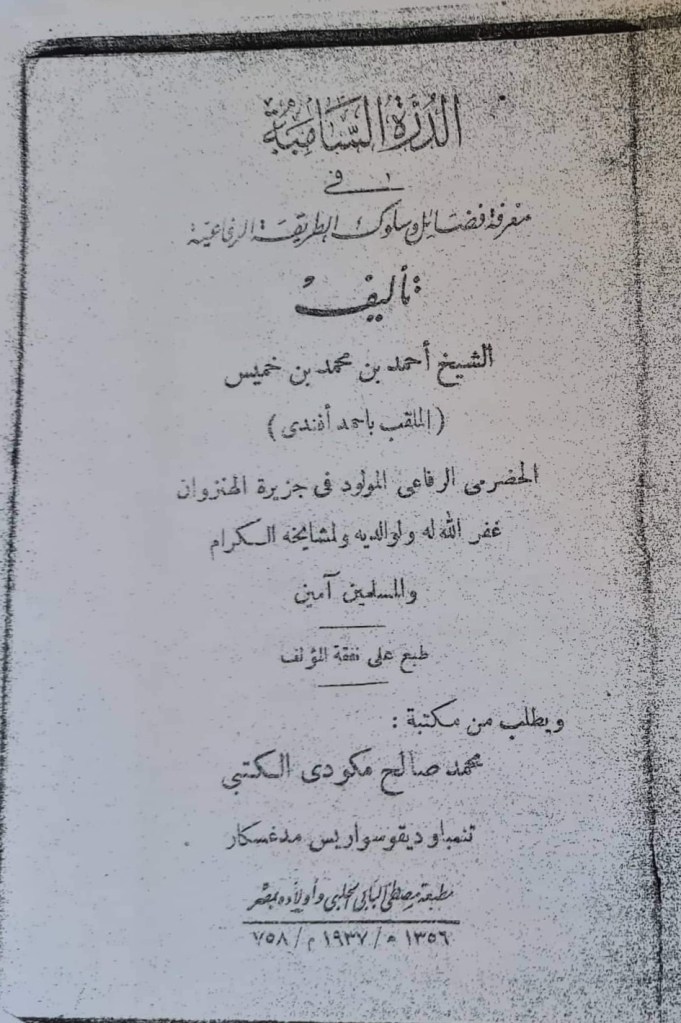 الدرة السامية
في
معرفة فضائل وسلوك الطريقة الرفاعية
تأليف
الشيخ أحمد بن محمد بن خميس
(الملقب باحمد أفندى)
الحضرمى الرفاعى المولود فى جزيرة الهنزوان
غفر الله له ولوالديه ولمشايخه الكرام
والمسلمين آمين
طبع على نفقة المؤلف
ويطلب من مكتبة :
محمد صالح مكودى الكتبي
تنمباو ديقوسواريس مدغسكار
مطبعة مصطفى البابى الحلبى وأولاده بمصر
١٣٥٦ ه / ١٩٣٧ م / ٧٥٨